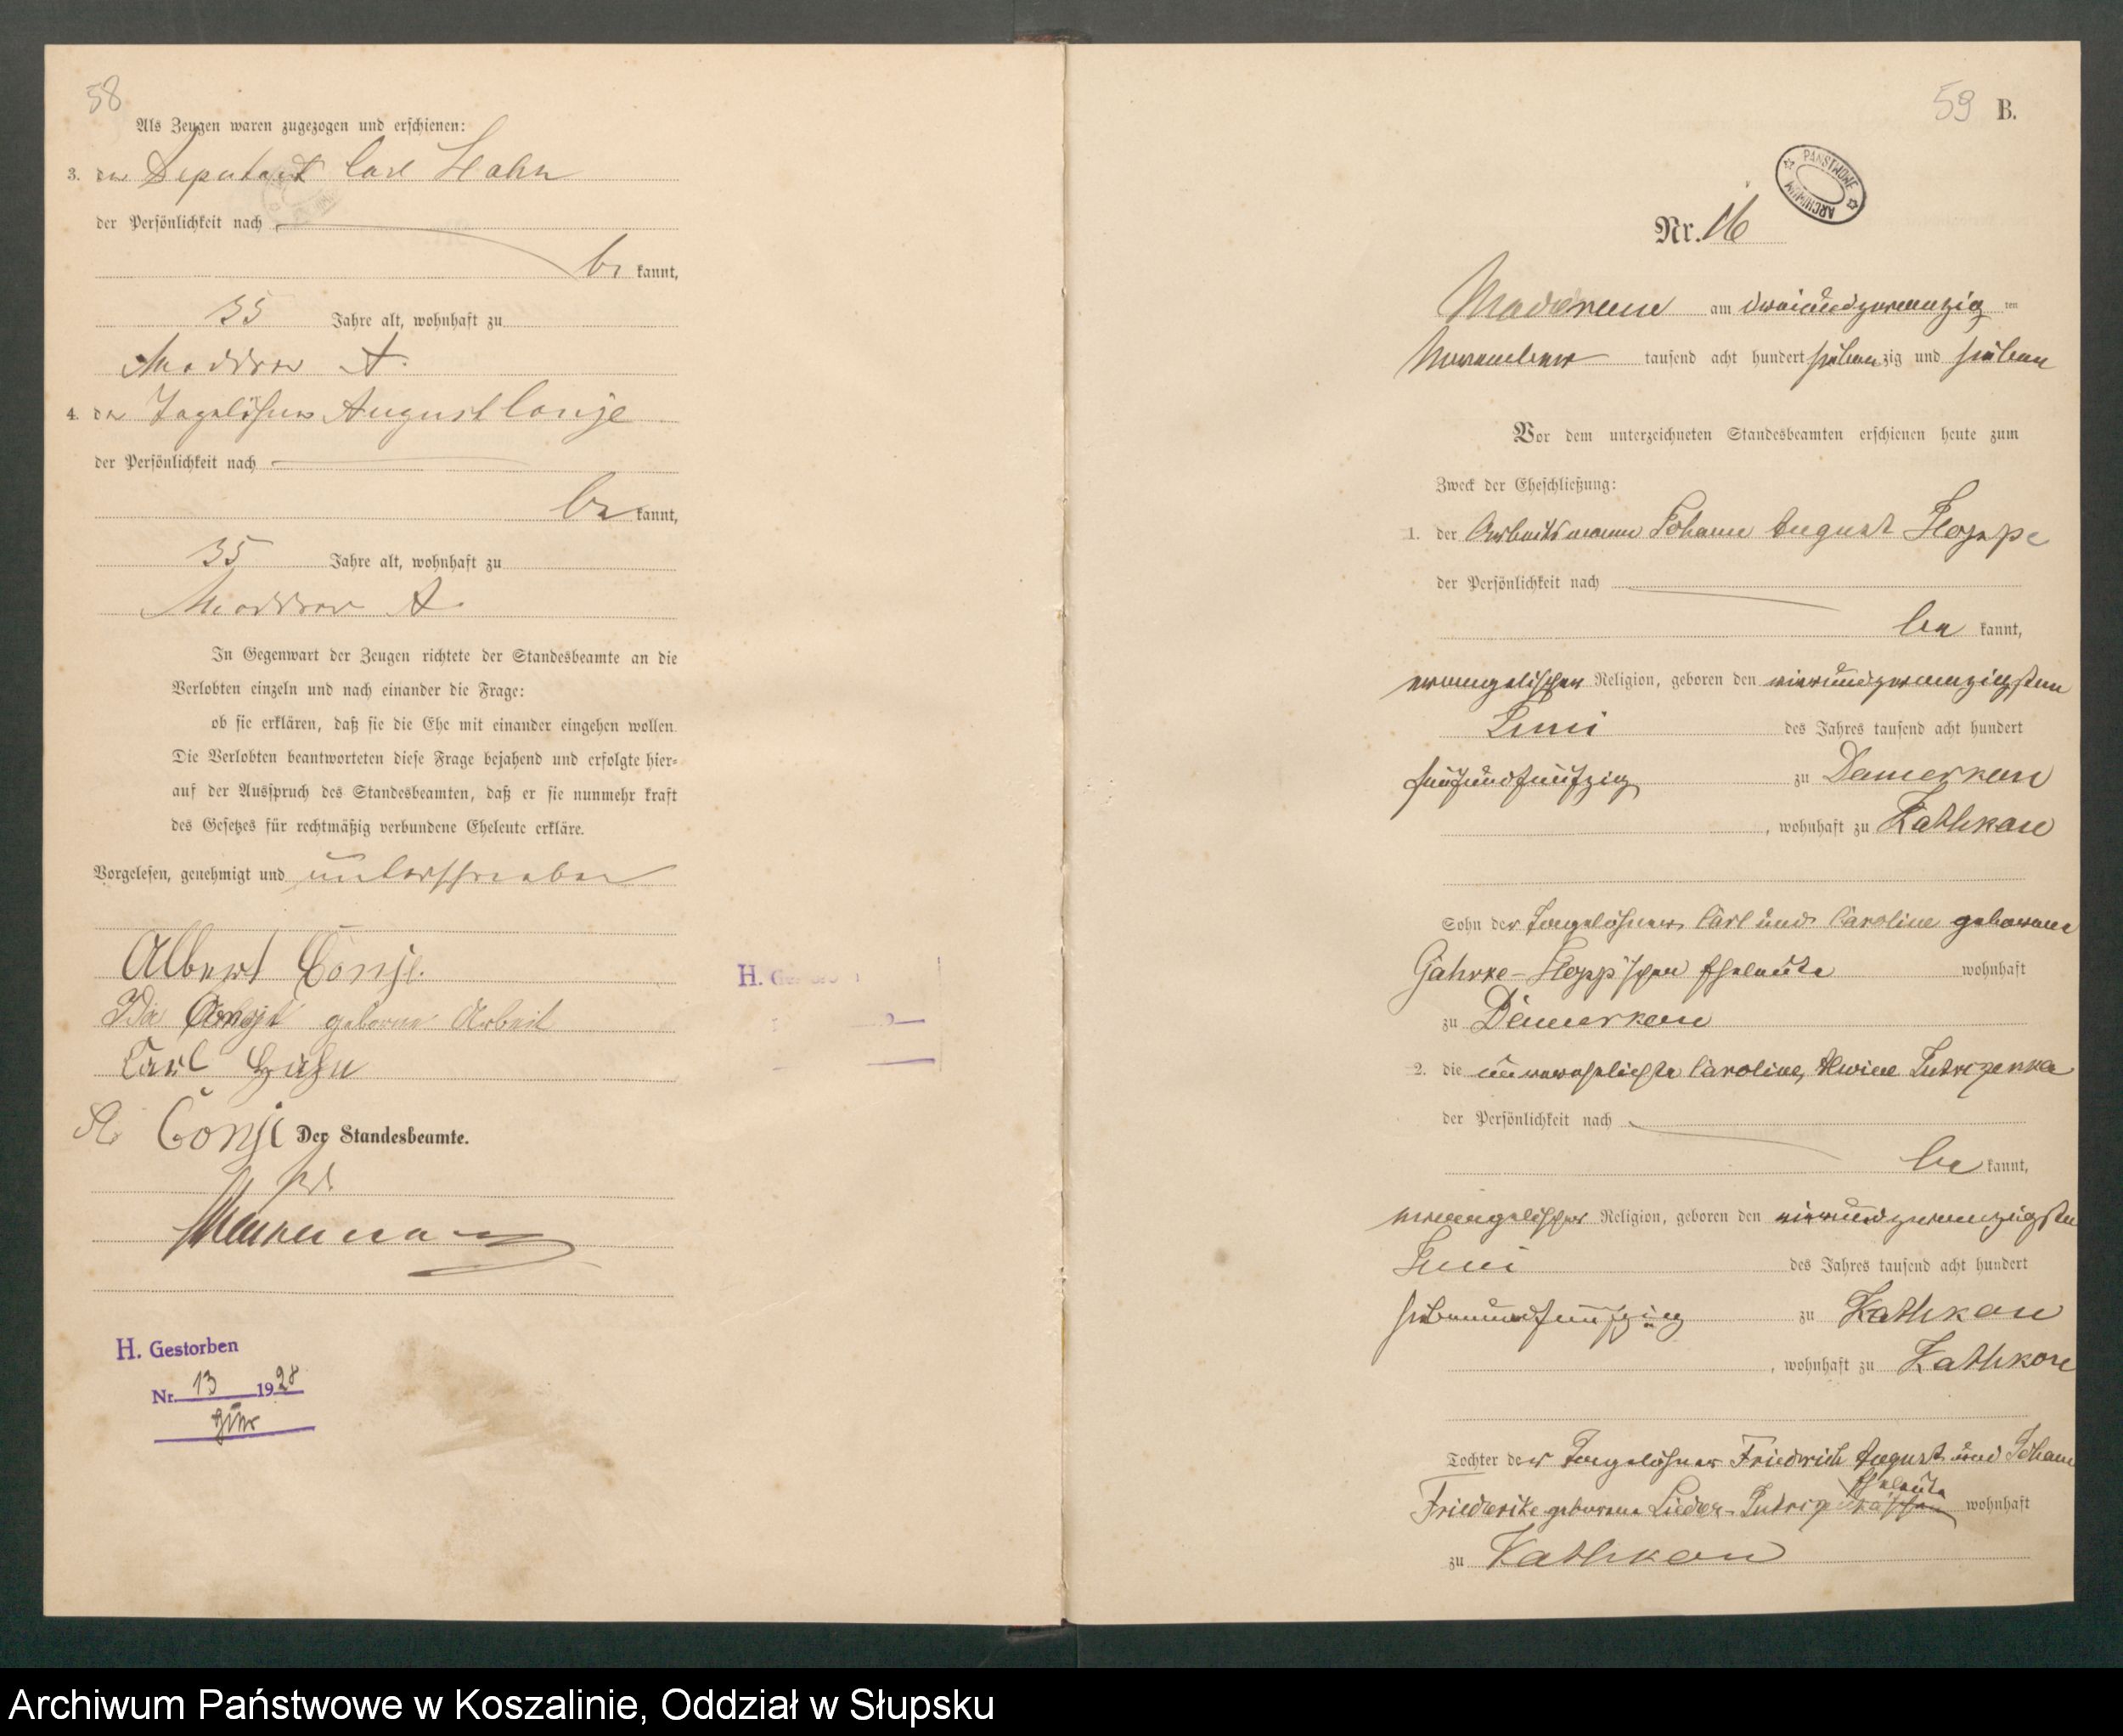 58
Als Zeugen waren zugezogen und erschienen:
3. der Deputant Carl Hahn
der Persönlichkeit nach
be kannt,
35 Jahre alt, wohnhaft zu
Moddrow A.
4. der Tagelöhner August Conje
der Persönlichkeit nach
be kannt,
35 Jahre alt, wohnhaft zu
Moddrow A.
In Gegenwart der Zeugen richtete der Standesbeamte an die
Verlobten einzeln und nach einander die Frage:
ob sie erklären, daß sie die Ehe mit einander eingehen wollen.
Die Verlobten beantworteten diese Frage bejahend und erfolgte hier-
auf der Ausspruch des Standesbeamten, daß er sie nunmehr kraft
des Gesetzes für rechtmäßig verbundene Eheleute erkläre.
Vorgelesen, genehmigt und unterschrieben
Albert Conje.
Ida Conje geborene Arbeit
Carl Hahn
A. Conje
Der Standesbeamte.
H. Gestorben
Nr. 13 1928
H.
59 B.
PAŃSTWOWE ARCHIWUM
Nr. 16
am dreiundzwanzig ten
November tausend acht hundert siebenzig und sieben
Vor dem unterzeichneten Standesbeamten erschienen heute zum
Zweck der Eheschließung:
1. der Arbeitsmann Johann August Hoppe
der Persönlichkeit nach
be kannt,
evangelischer Religion, geboren den vierundzwanzigsten
Juni des Jahres tausend acht hundert
fünfundfünfzig zu Damerkow
, wohnhaft zu Kathkow
Sohn der Tagelöhner Carl und Caroline geborene
Gahrke-Hopp'schen Eheleute wohnhaft
zu Damerkow
2. die unverehelichte Caroline, Alwine Jutrzenka
der Persönlichkeit nach
be kannt,
evangelischer Religion, geboren den vierundzwanzigsten
Juni des Jahres tausend acht hundert
siebenundfünfzig zu Kathkow
, wohnhaft zu Kathkow
Tochter der Tagelöhner Friedrich August und Johann
Eheleute
Friederike geborene Lieder-Jutrzenka'schen wohnhaft
zu Kathkow
Archiwum Państwowe w Koszalinie, Oddział w Słupsku